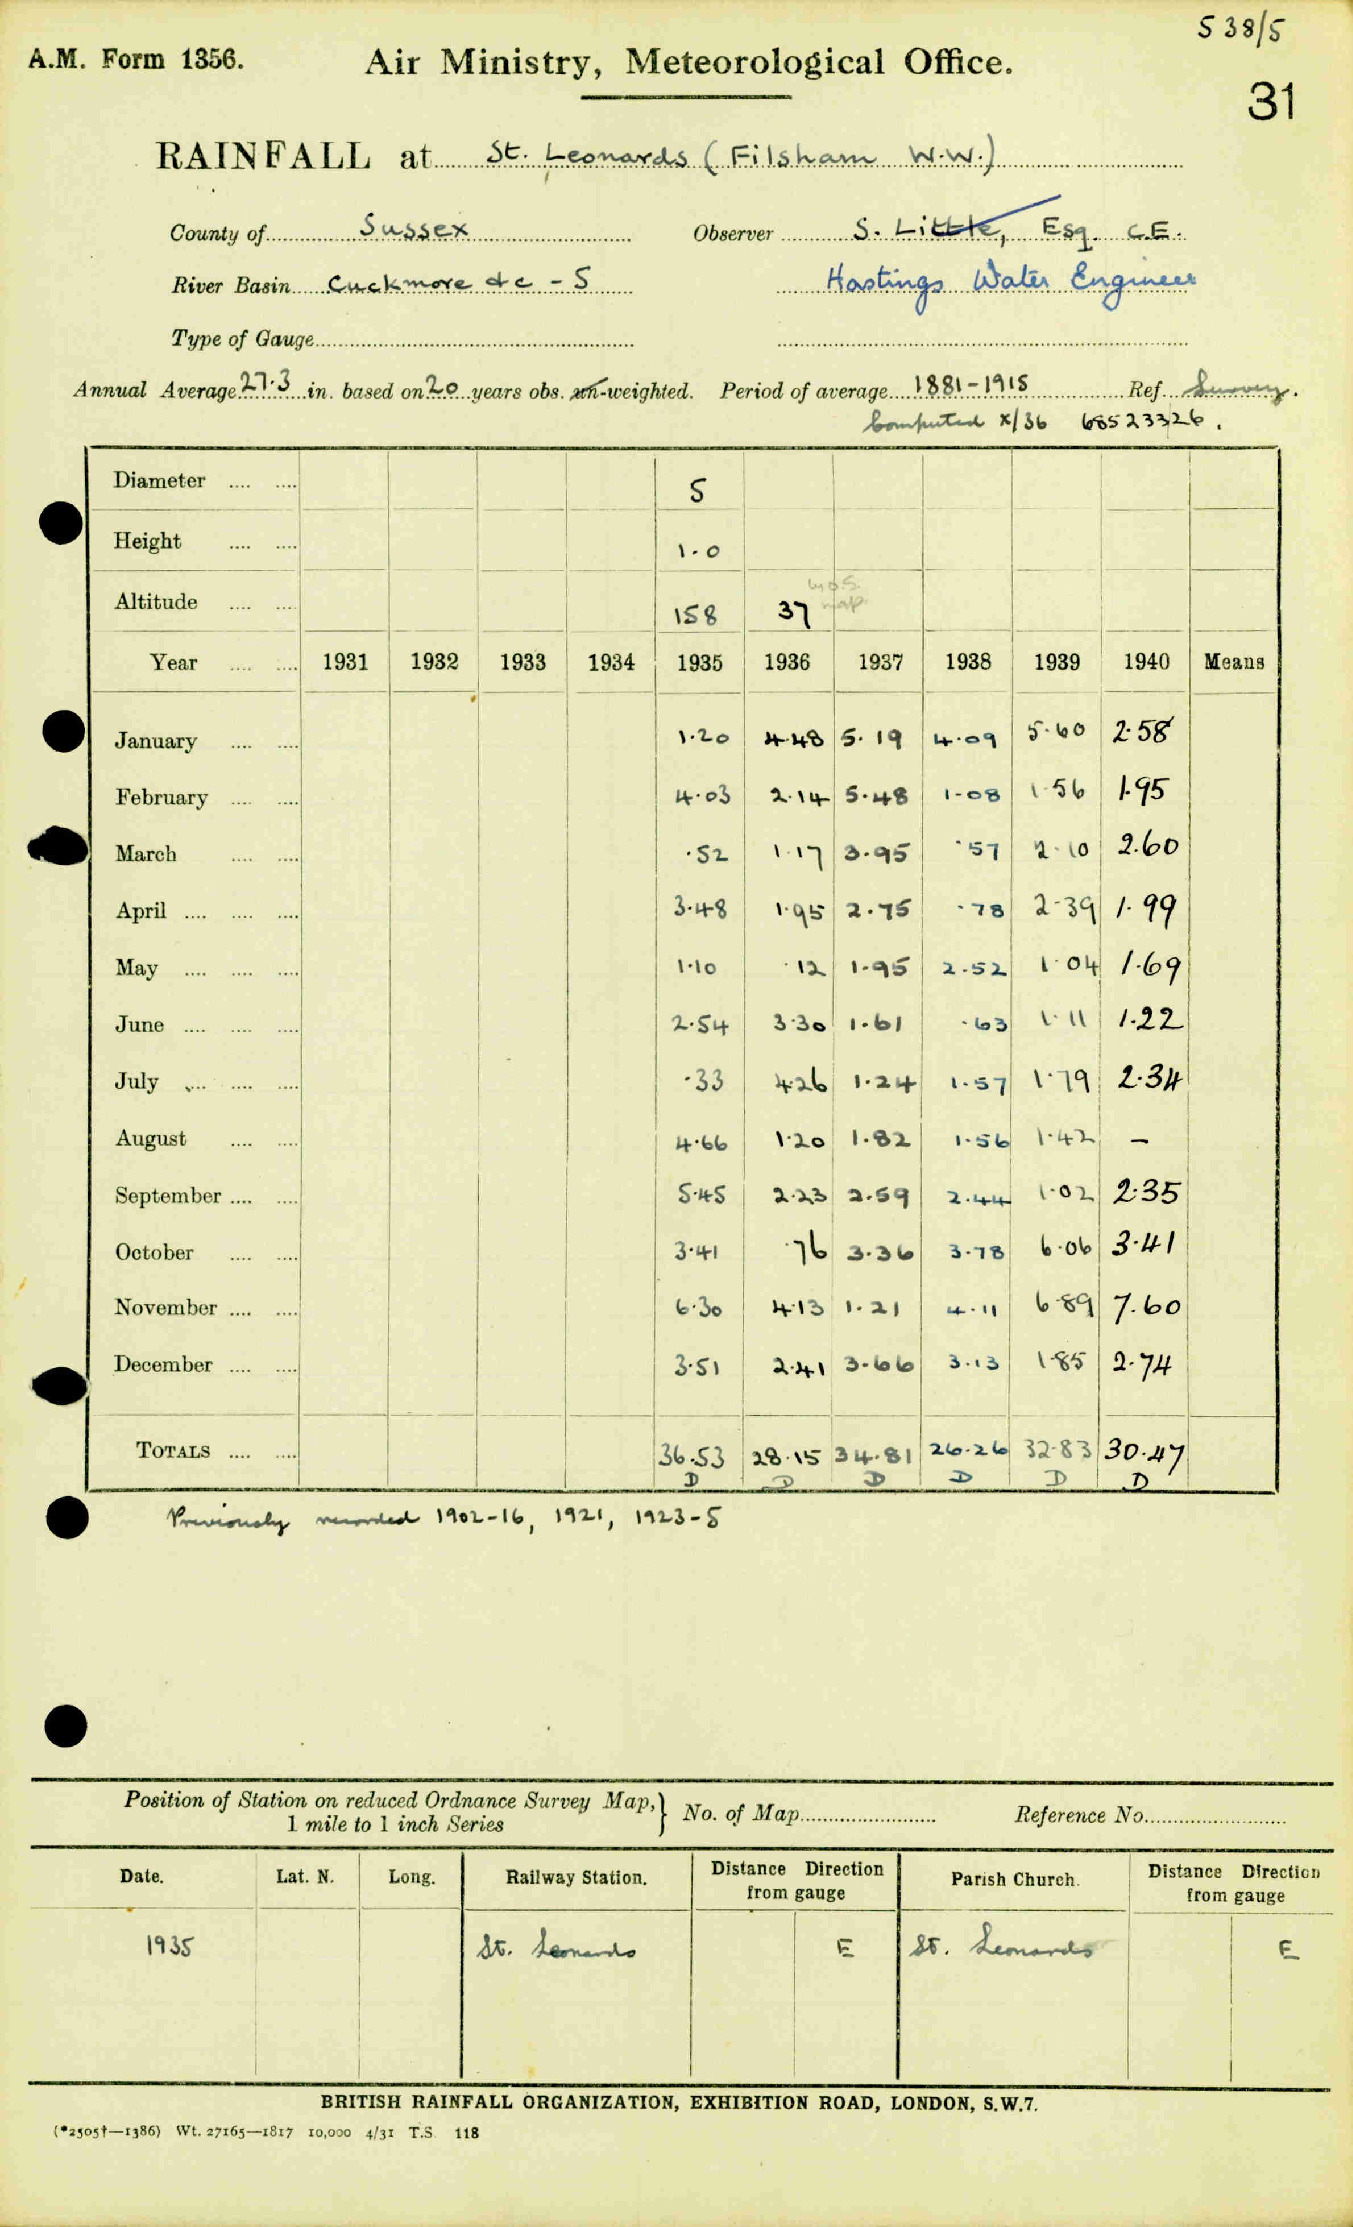 S 38/5
A.M. Form 1356. Air Ministry, Meteorological Office.
31
RAINFALL at St. Leonards (Filsham W.W.)
County of Sussex Observer S. Little, Esq. C.E.
River Basin Cuckmore &c - S Hastings Water Engineer
Type of Gauge
Annual Average 27.3 in. based on 20 years obs. un-weighted. Period of average 1881-1915 Ref. Survey.
Computed x/36 68523326.
Diameter .... .... 5
Height .... .... 1.0
by O.S. map
Altitude .... .... 158 37
Year .... .... 1931 1932 1933 1934 1935 1936 1937 1938 1939 1940 Means
January .... .... 1.20 4.48 5.19 4.09 5.60 2.58
February .... .... 4.03 2.14 5.48 1.08 1.56 1.95
March .... .... .52 1.17 3.95 .57 2.10 2.60
April .... .... .... 3.48 1.95 2.75 .78 2.39 1.99
May .... .... .... 1.10 .12 1.95 2.52 1.04 1.69
June .... .... .... 2.54 3.30 1.61 .63 1.11 1.22
July .... .... .... .33 4.26 1.24 1.57 1.79 2.34
August .... .... 4.66 1.20 1.82 1.56 1.42 -
September .... .... 5.45 2.23 2.59 2.44 1.02 2.35
October .... .... 3.41 .76 3.36 3.78 6.06 3.41
November .... .... 6.30 4.13 1.21 4.11 6.89 7.60
December .... .... 3.51 2.41 3.66 3.13 1.85 2.74
TOTALS .... .... 36.53 28.15 34.81 26.26 32.83 30.47
D D D D D D
Previously recorded 1902-16, 1921, 1923-5
Position of Station on reduced Ordnance Survey Map, } No. of Map Reference No.
1 mile to 1 inch Series
Date. Lat. N. Long. Railway Station. Distance Direction from gauge Parish Church. Distance Direction from gauge
1935 St. Leonards E St. Leonards E
BRITISH RAINFALL ORGANIZATION, EXHIBITION ROAD, LONDON, S.W.7.
(*2505†—1386) Wt. 27165—1817 10,000 4/31 T.S. 118